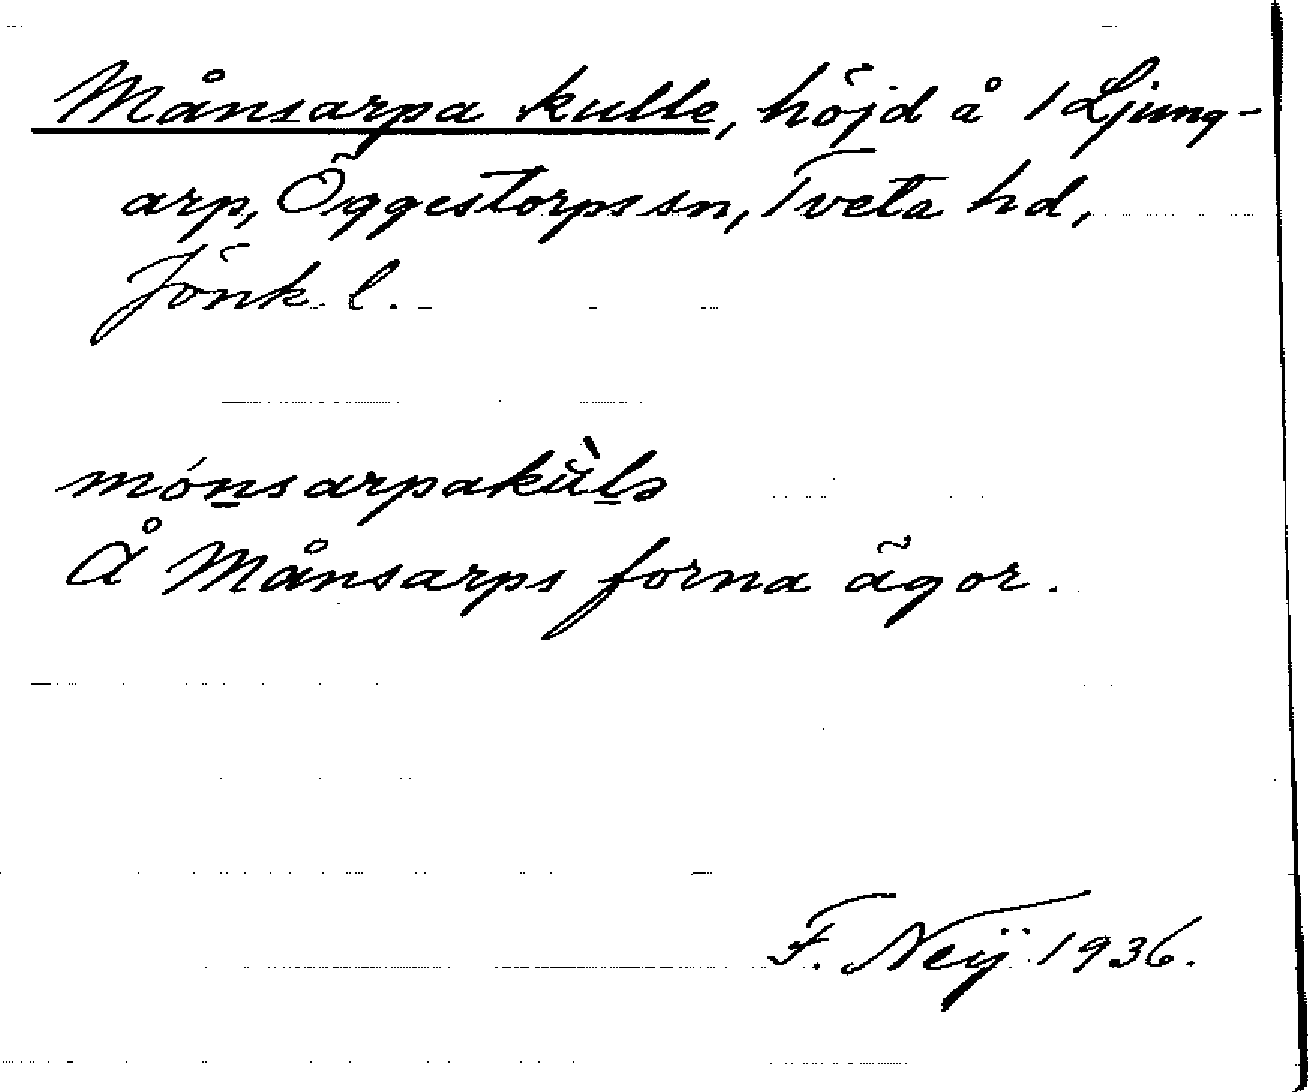 Månsarpa kulle, höjd å 1 Ljung-
arp, Öggestorps sn, Tveta hd,
Jönk. l.
mónsarpakùlə
Å Månsarps forna ägor.
F. Neij 1936.